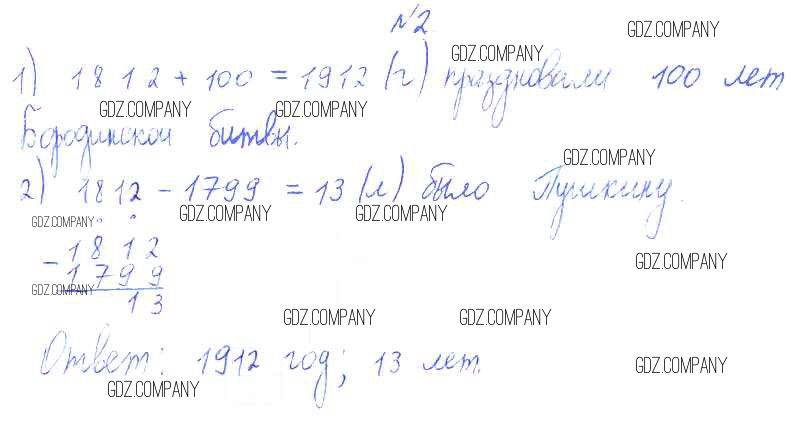 №2.
GDZ.COMPANY
GDZ.COMPANY
1) 1812 + 100 = 1912 (г) праздновали 100 лет
GDZ.COMPANY GDZ.COMPANY
Бородинской битвы.
GDZ.COMPANY
2) 1812 - 1799 = 13 (л) было Пушкину.
GDZ.COMPANY GDZ.COMPANY GDZ.COMPANY
- 1812
GDZ.COMPANY
1799
GDZ.COMPANY
13
GDZ.COMPANY GDZ.COMPANY
Ответ: 1912 год; 13 лет.
GDZ.COMPANY
GDZ.COMPANY